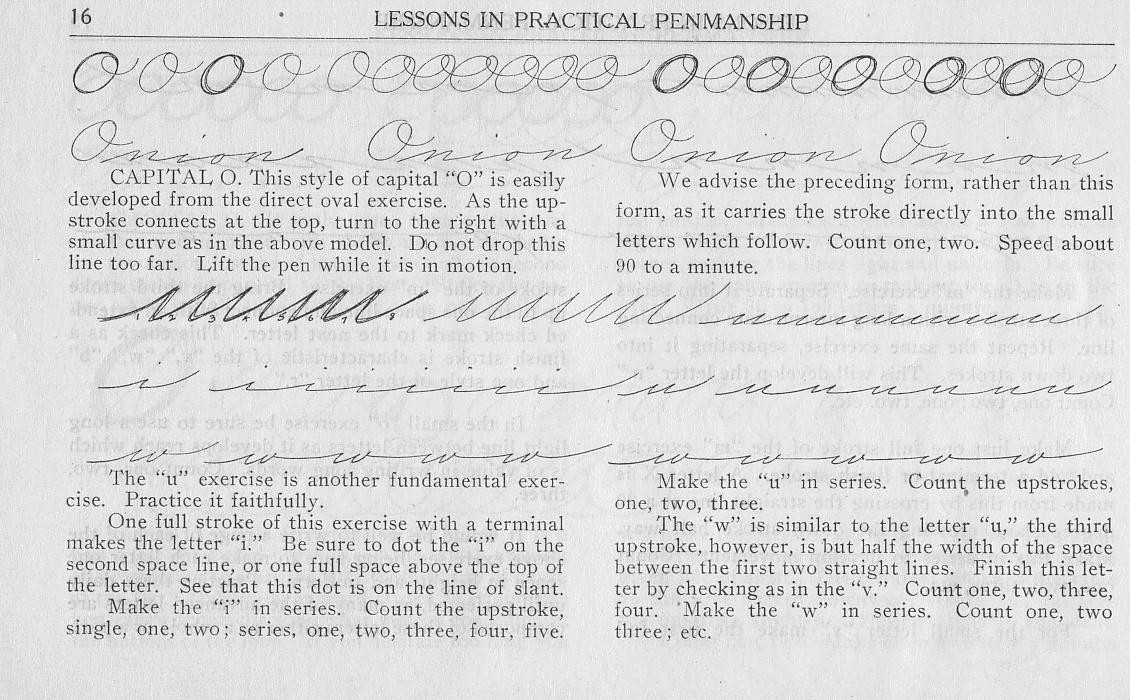 16
LESSONS IN PRACTICAL PENMANSHIP
O O O O O O O O O O O O O O O O O O O O O O
Onion Onion Onion Onion
CAPITAL O. This style of capital "O" is easily
developed from the direct oval exercise. As the up-
stroke connects at the top, turn to the right with a
small curve as in the above model. Do not drop this
line too far. Lift the pen while it is in motion.
We advise the preceding form, rather than this
form, as it carries the stroke directly into the small
letters which follow. Count one, two. Speed about
90 to a minute.
i i i i i i i u u u u u u u
w w w w w w w w w w w
The "u" exercise is another fundamental exer-
cise. Practice it faithfully.
One full stroke of this exercise with a terminal
makes the letter "i." Be sure to dot the "i" on the
second space line, or one full space above the top of
the letter. See that this dot is on the line of slant.
Make the "i" in series. Count the upstroke,
single, one, two; series, one, two, three, four, five.
Make the "u" in series. Count the upstrokes,
one, two, three.
The "w" is similar to the letter "u," the third
upstroke, however, is but half the width of the space
between the first two straight lines. Finish this let-
ter by checking as in the "v." Count one, two, three,
four. Make the "w" in series. Count one, two
three; etc.